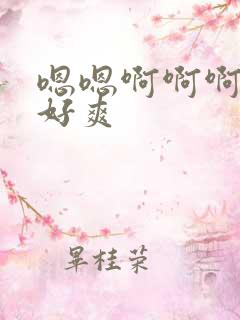 嗯嗯啊啊啊
好爽
晕桂荣